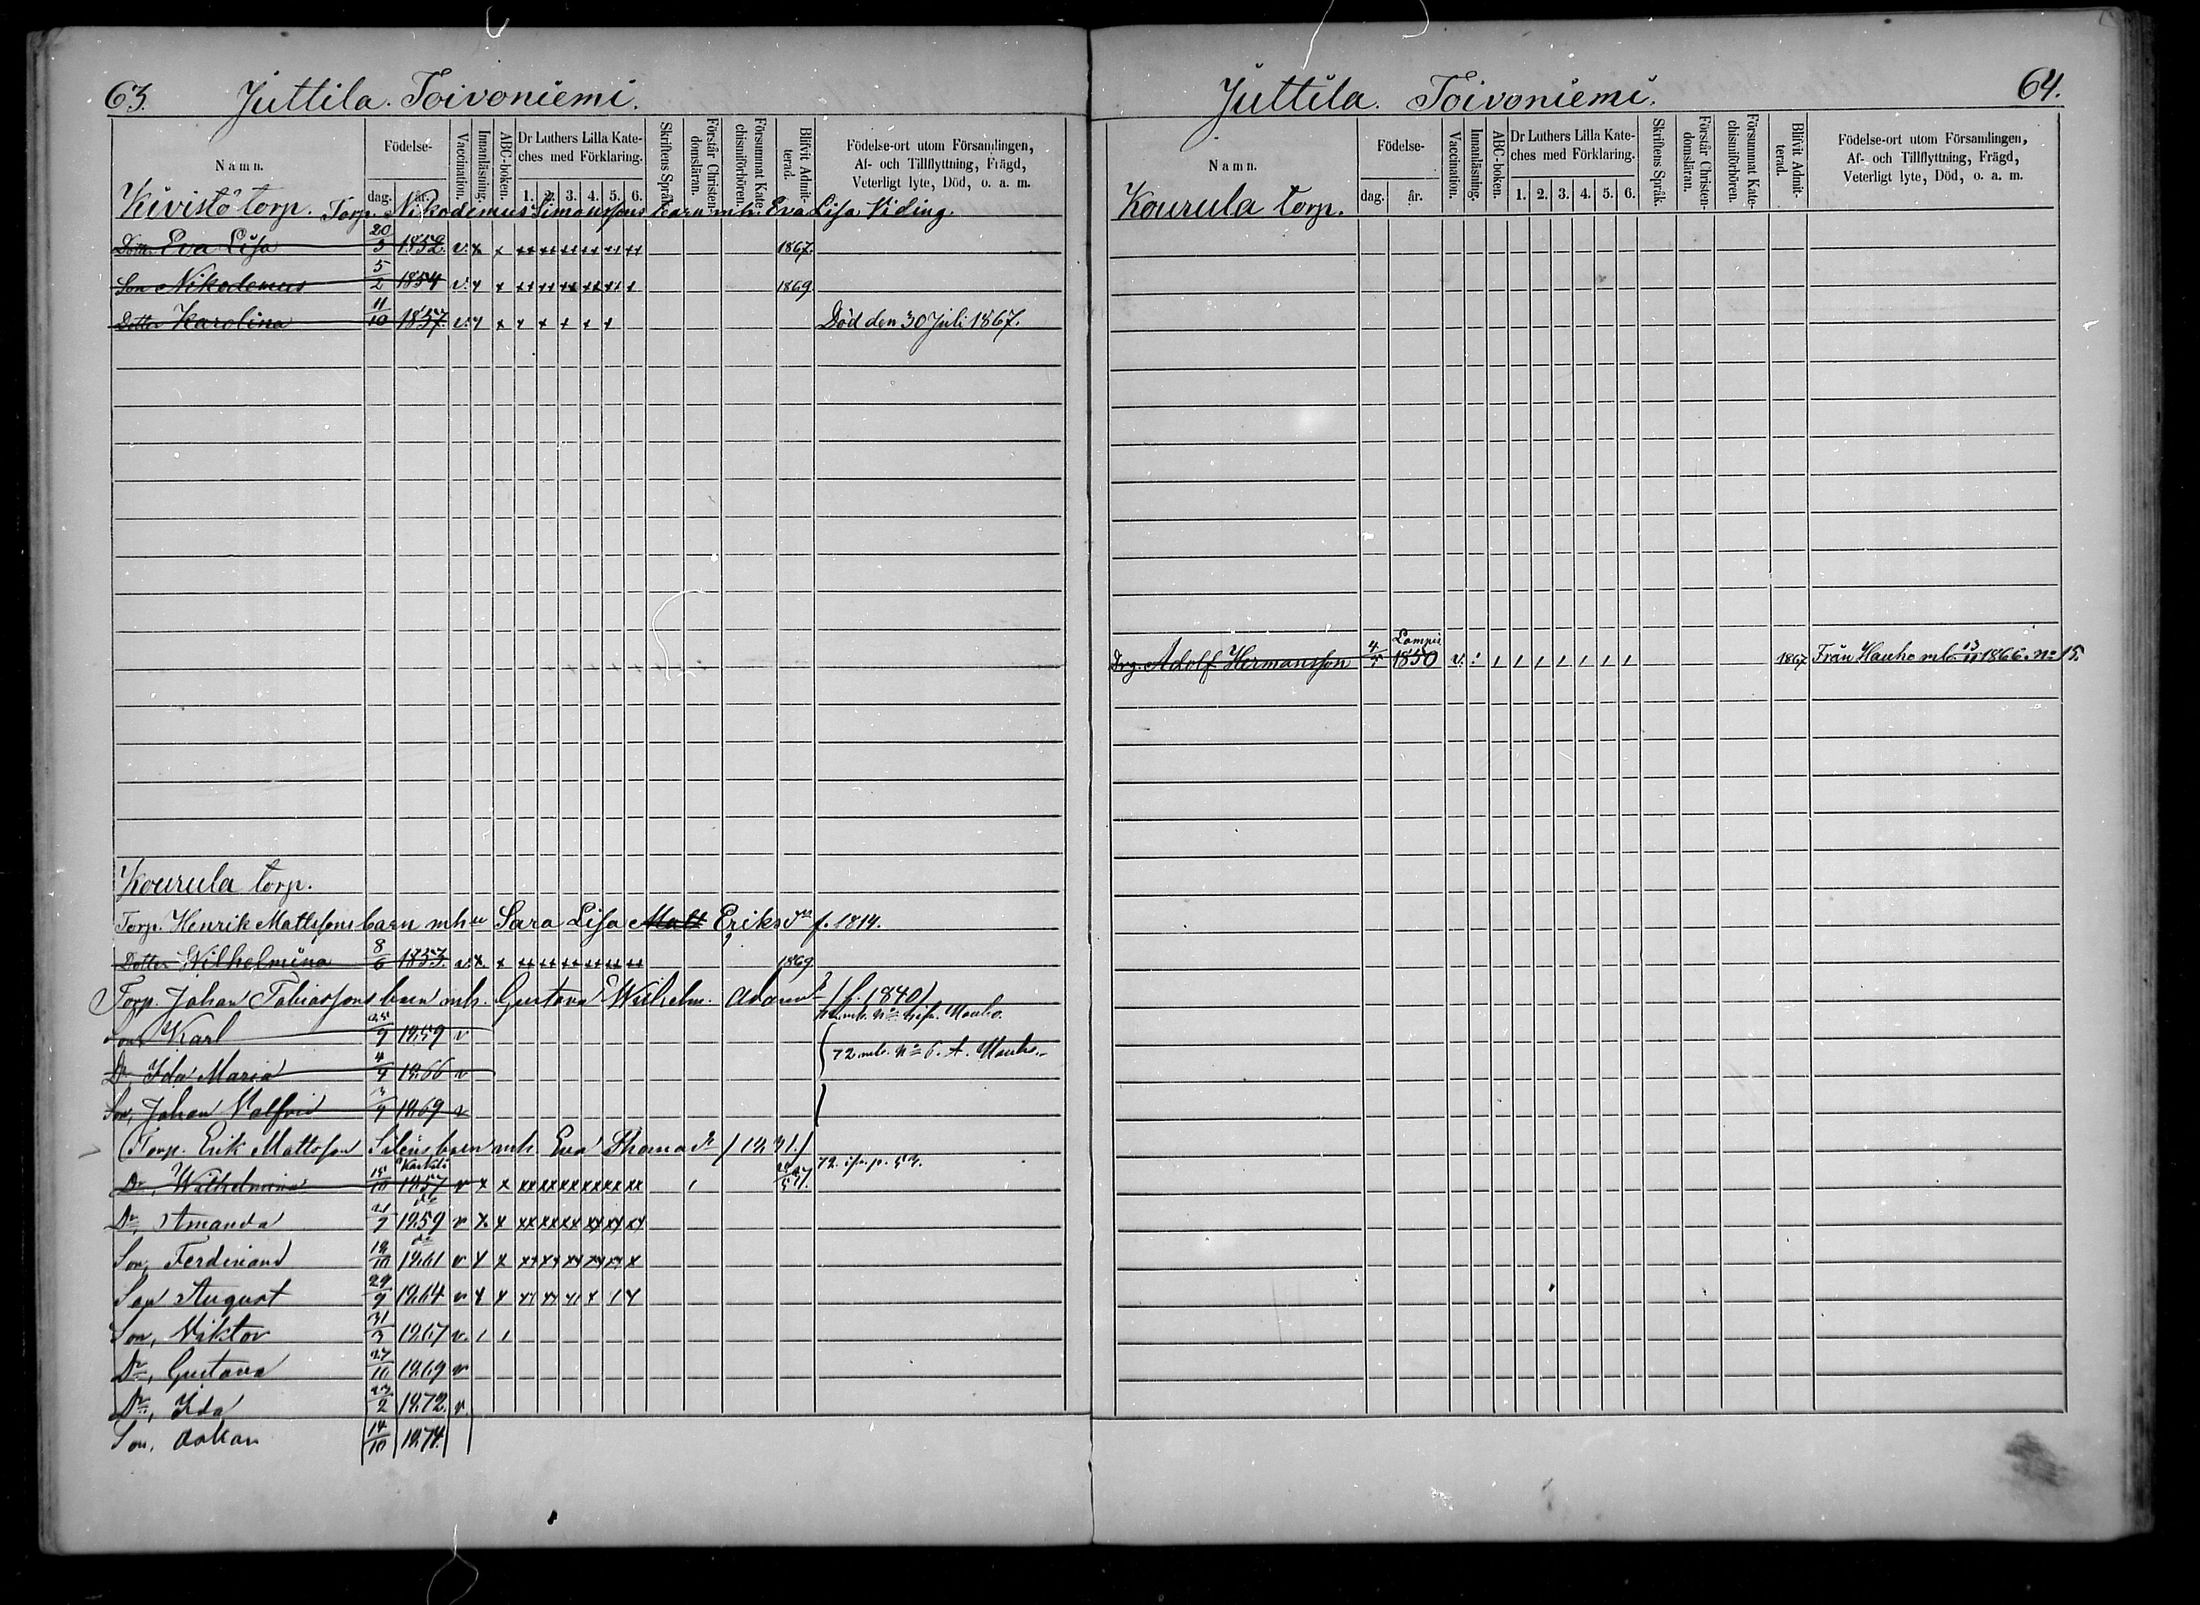 63. Juttila. Toivoniemi.
Namn. Födelse- dag. år. Vaccination. Innanläsning. ABC-boken. Dr Luthers Lilla Kateches med Förklaring. 1. 2. 3. 4. 5. 6. Skriftens Språk. Förstår Christendomsläran. Försummat Katechismiförhören. Blifvit Admitterad. Födelse-ort utom Församlingen, Af- och Tillflyttning, Frägd, Veterligt lyte, Död, o. a. m.
Kivistö torp. Torp. Nikodemus Simonssons barn mh. Eva Lisa Viding.
Dotter Eva Lisa 20/3 1852. v. x x 1867.
Son Nikodemus 5/2 1854 v. x x 1869
Dotter Karolina 11/10 1857. v. x x x x x x x Död den 30 Juli 1867.
Kourula torp.
Torp. Henrik Mattssons barn mh Sara Lisa Matt Eriksdr f. 1814.
Dotter Wilhelmina 8/6 1853. v. x. x 1869
Torp. Johan Tobiassons barn mh. Gustava Wilhelm. Adamdr (f. 1840)
Son Karl 25/9 1859 v
Dr Ida Maria 4/9 1866 v 72 mb. No 6. t. Hauho.
Son, Johan Valfrid 3/9 1869 v
Torp. Erik Mattsson barn mh. Eva Thomadr (1831.)
Dr, Wilhelmina 15/10 1857 v x x xx xx xx xx xx xx 72. p. 53.
Dr, Amanda 21/7 1859 v x x xx xx xx xx xx xx
Son, Ferdinand 18/10 1861 v x x xx xx xx xx xx x
Son August 29/9 1864 v x x xx xx x1 x 1 x
Son, Viktor 31/3 1867 v. 1 1
Dr, Gustava 27/10 1869 v
Dr, Ida 23/2 1872. v.
Son, Oskar 14/10 1874.
Juttila. Toivoniemi. 64.
Namn. Födelse- dag. år. Vaccination. Innanläsning. ABC-boken. Dr Luthers Lilla Kateches med Förklaring. 1. 2. 3. 4. 5. 6. Skriftens Språk. Förstår Christendomsläran. Försummat Katechismiförhören. Blifvit Admitterad. Födelse-ort utom Församlingen, Af- och Tillflyttning, Frägd, Veterligt lyte, Död, o. a. m.
Kourula torp.
Lampis
Drg. Adolf Hermansson 4/5 1850 v. : 1 1 1 1 1 1 1 1867 Från Hauho mb 13/11 1866. No 15.